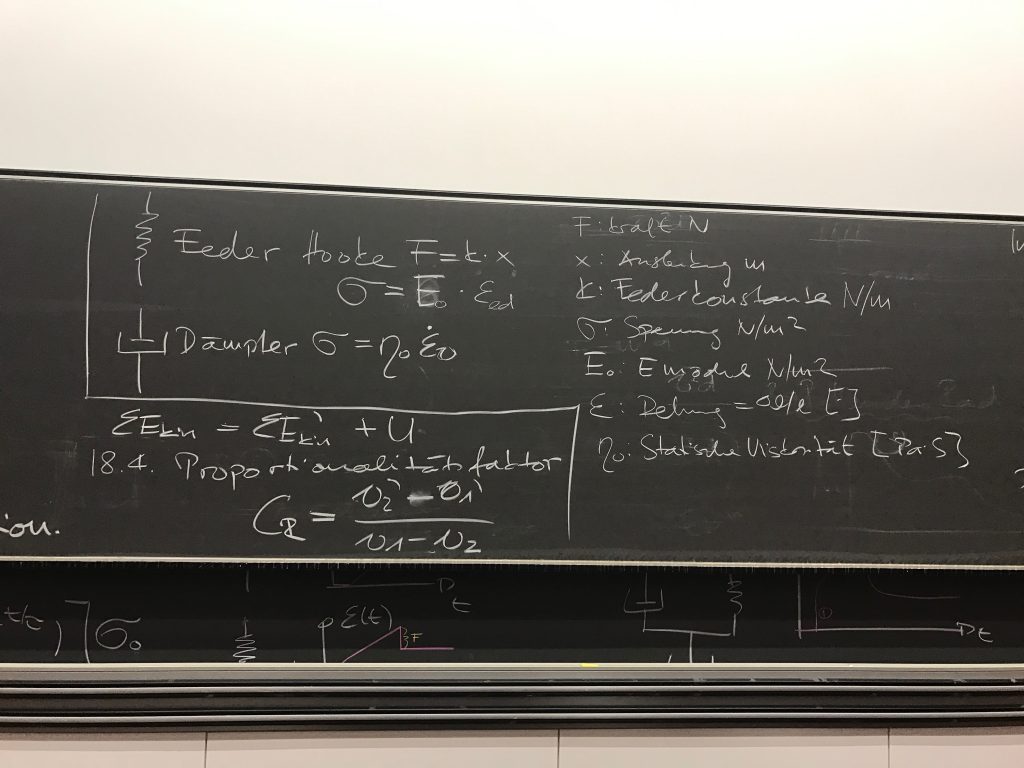 Feder Hooke F = k · x
σ = E₀ · ε_ed
Dämpfer σ = η₀ ε̇₀
ΣE_kin = ΣE_kin' + U
18.4. Proportionalitätsfaktor
C_R = (v₂' - v₁') / (v₁ - v₂)
F: Kraft N
x: Auslenkung m
k: Federkonstante N/m
σ: Spannung N/m²
E₀: E modul N/m²
ε: Dehnung = Δl/l [ ]
η₀: Statische Viskosität [Pa·S]
ion.
t/τ ) ] σ₀
t
ε(t)
F
①
t